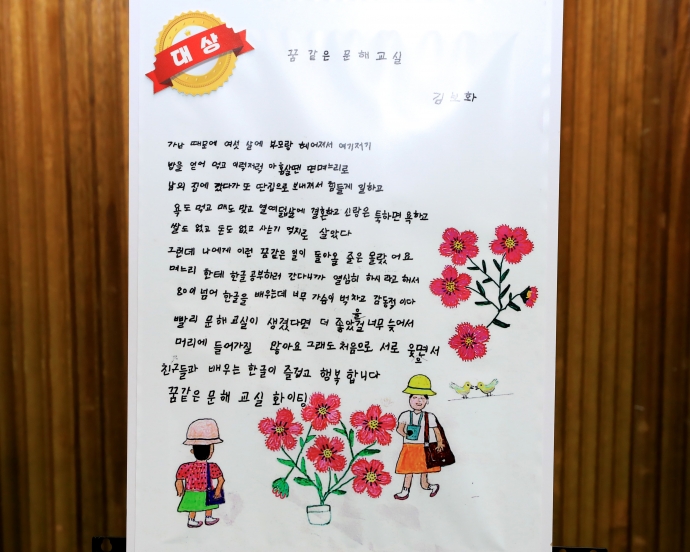 대상
꿈 같은 문해교실
김 화
가난 때문에 여섯 살에 부모랑 헤어져서 여기저기
밥을 얻어 먹고 이럭저럭 아홉살땐 면며느리로
남의 집에 갔다가 또 딴집으로 보내져서 힘들게 일하고
욕도 먹고 매도 맞고 열여덟살에 결혼하고 신랑은 툭하면 욕하고
쌀도 없고 돈도 없고 사는기 억지로 살았다
그런데 나에게 이런 꿈같은 일이 돌아올 줄은 몰랐어요
며느리 한테 한글공부하러 간다니까 열심히 하시라고 해서
80이 넘어 한글을 배우는데 너무 가슴이 벅차고 감동적이다
빨리 문해교실이 생겼다면 더 좋았을걸 너무 늦어서
머리에 들어가질 않아요 그래도 처음으로 서로 웃으면서
친구들과 배우는 한글이 즐겁고 행복합니다
꿈같은 문해 교실 화이팅